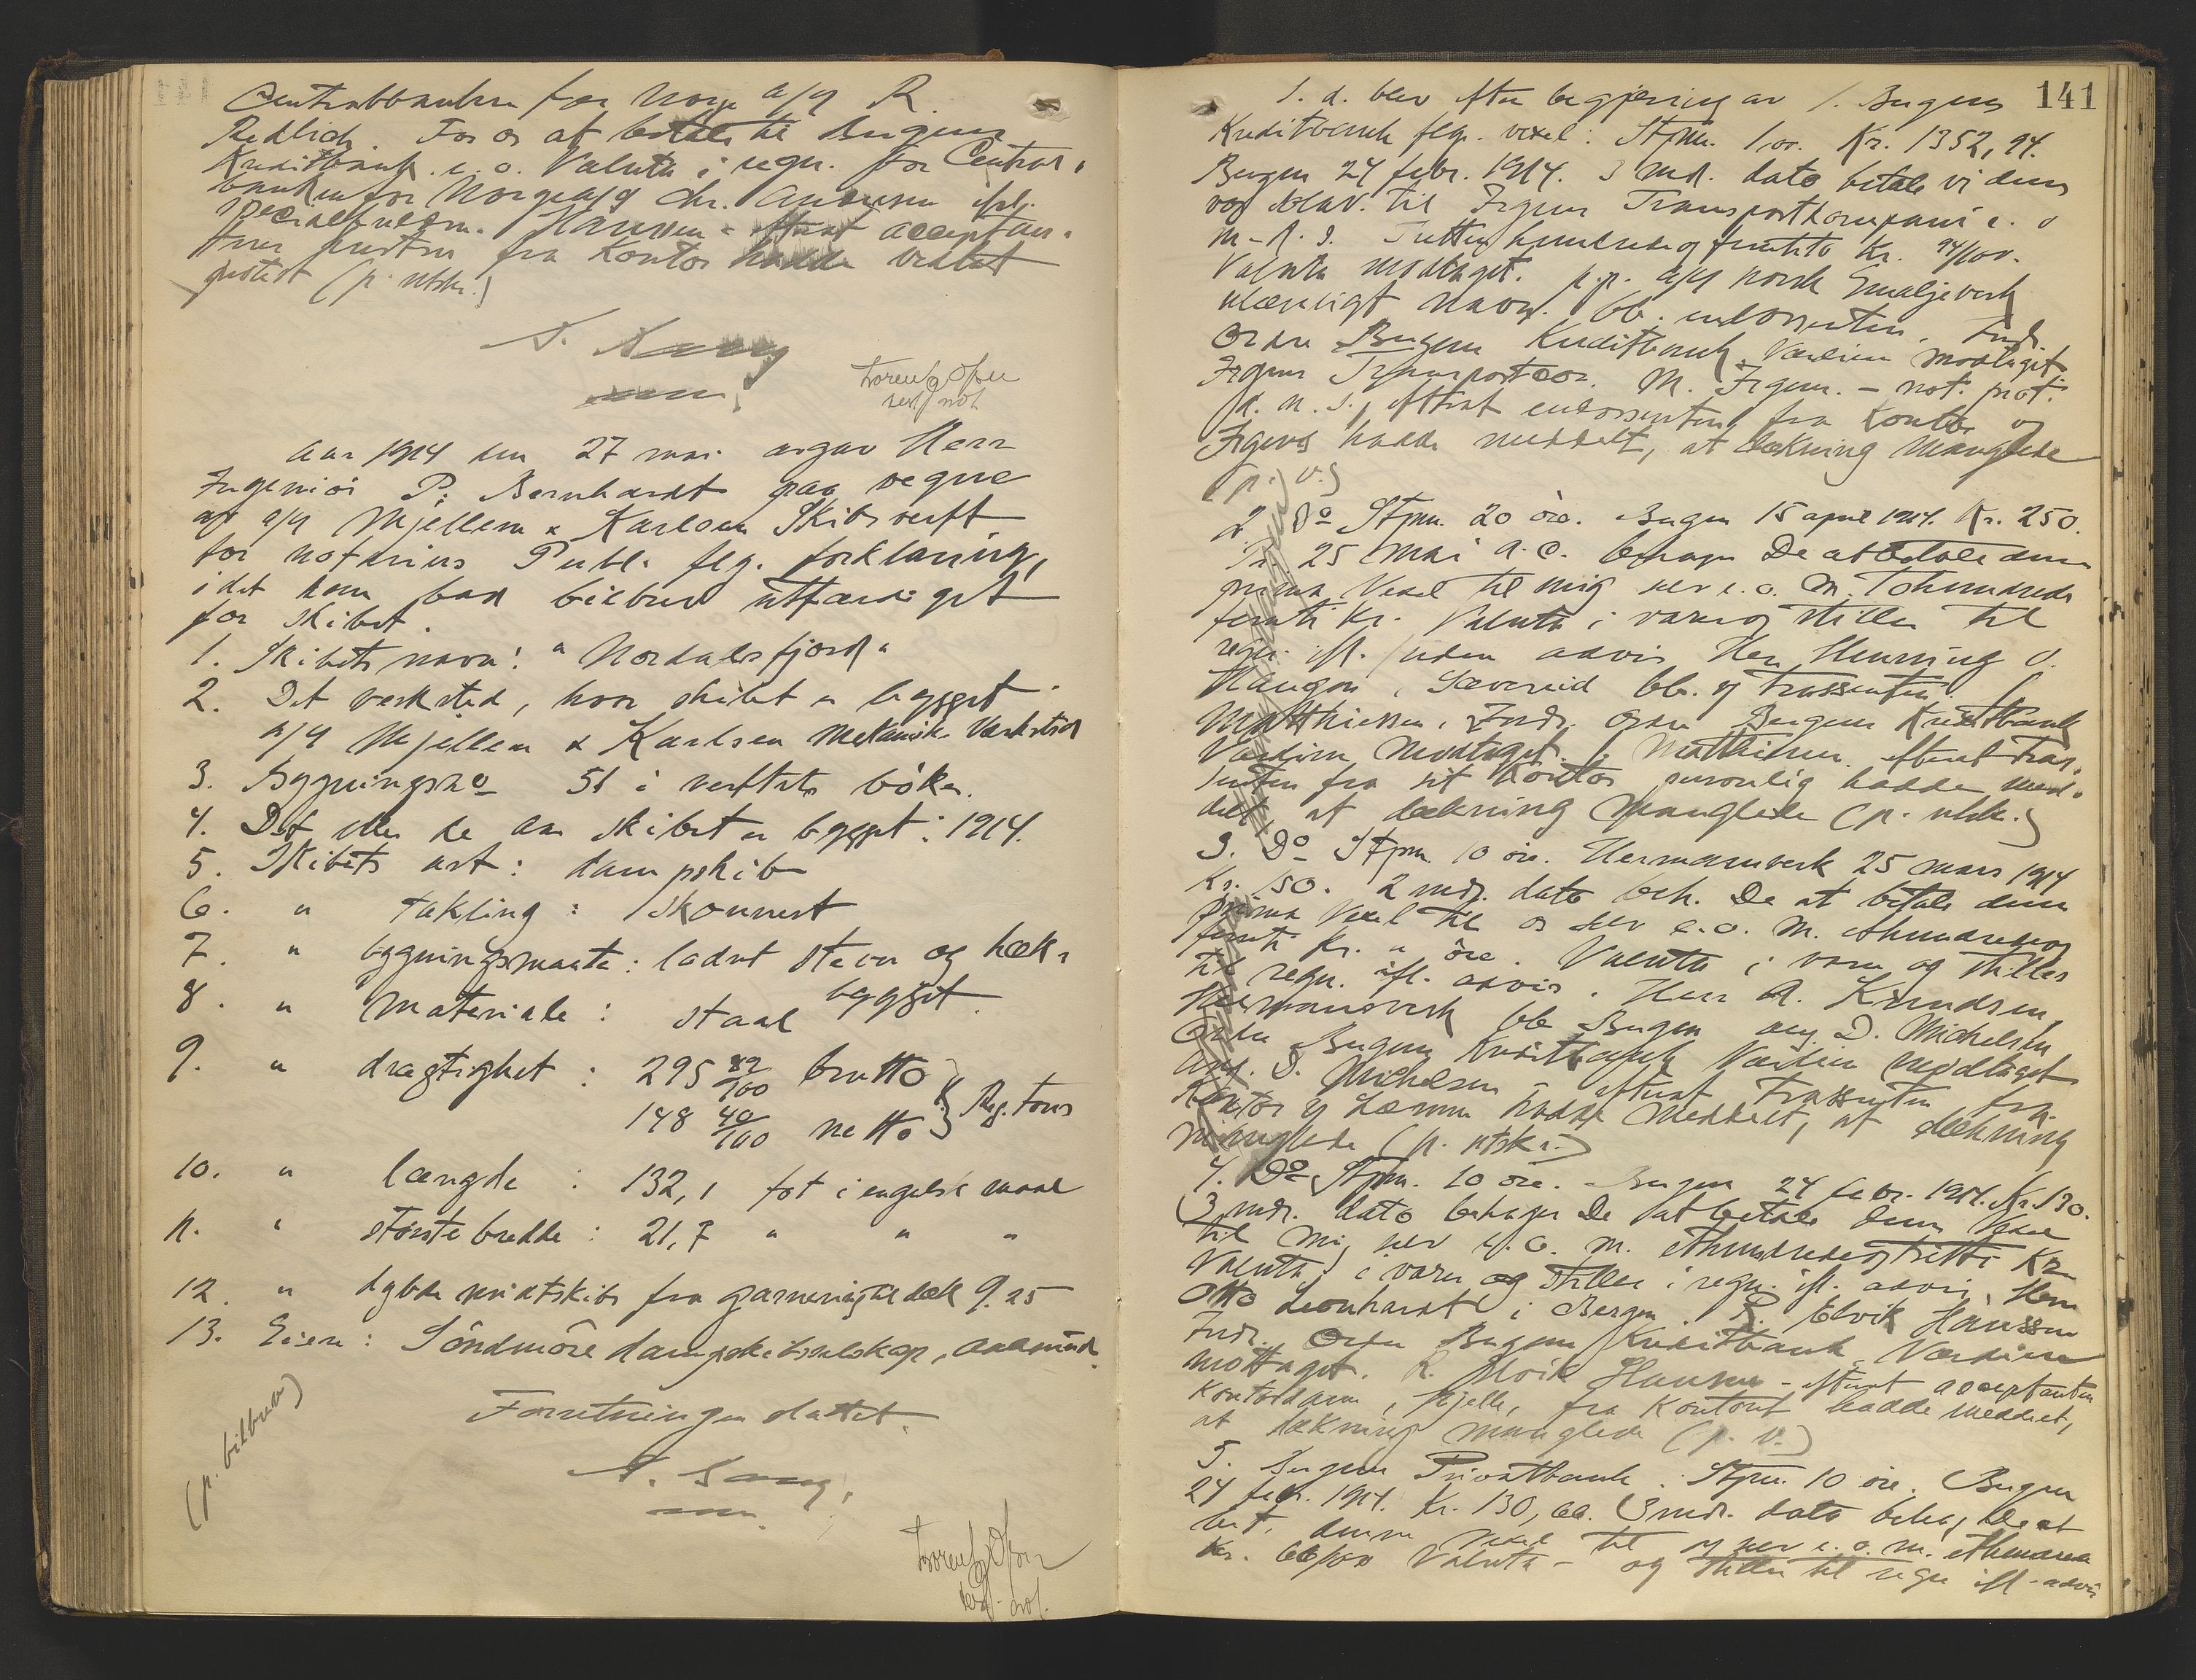 Centralbanken for Norge a/s R.
Redlich. For os at betale til Bergens
Kreditbank e. o. Valuta i regn. for Central-
banken for Norge a/s Chr. Andresen iføl.
specialfuldm. Hanssen - efterat acceptan-
tens fra Kontor hadde vedtat
protest (p. utskr.)
Lorentz
test not
Aar 1914 den 27 mai avgav Herr
Ingeniør P. Bernhardt paa vegne
af a/s Mjellem & Karlsen Skibsverft
for notarius Publ. flg. forklaring,
idet han bad bilbrev utfærdiget
for skibet.
1. Skibets navn: "Nordalsfjord"
2. Det verksted, hvor skibet er bygget
a/s Mjellem & Karlsen Mekanisk Verksted
3. Bygningsno 51 i verftets bøker.
4. Det eller de aar skibet er bygget: 1914.
5. Skibets art: dampskib
6. " takling: Skonnert
7. " bygningsmaate: ladet stevn og hæk,
bygget.
8. " Materiale: staal
9. " drægtighet: 295 82/100 brutto
148 40/100 netto } Reg. tons
10. " længde: 132,1 fot i engelsk maal
11. " største bredde: 21,7 " " "
12. " dybde midtskibs fra garnering til dæk 9.25
13. Eiere: Søndmøre dampskibsselskap, Aalesund.
Forretningen sluttet.
(p. bilbrev)
Lorentz
test. not.
141
S. d. blev efter begjæring av 1. Bergens
Kreditbank flg. vexel: Stpm. 1,00. Kr. 1352,94.
Bergen 24 febr. 1914. 3 md. dato betale vi denne
vor solav. til Irgens Transportkompani e. o
m - K. S. Tretten hundrede og femtito Kr. 94/100.
Valuta modtaget. p.p. a/s norsk Emaljeverk
ulæseligt navn. bb. endossenten. Ind.
Ordre Bergens Kreditbank. Værdien modtaget
Irgens Transportco. M. Irgens. - not. prot.
d. n. s., efterat endossenten fra Kontor og
Irgens hadde meddelt, at dækning manglede
(p. v.)
2. Do Stpm. 20 øre. Bergen 15 april 1914. Kr. 250.
Pr 25 mai a. c. behager De at betale denne
prima Vexel til mig selv e. o. m. Tohundrede
femti Kr. Valuta i varer og stilles til
regn. ifl. / uden advis Herr Henning O.
Haugen, Sævereid bb. og trassenten.
Matthiessen. Indr. Ordre Bergens Kreditbank
Værdien modtaget. Matthiessen. efterat tras-
senten fra sit Kontor personlig hadde med-
delt, at dækning manglede (p. utskr.)
3. Do Stpm 10 øre. Hermansverk 25 mars 1914
Kr. 150. 2 mdr. dato beh. De at betale denne
prima Vexel til os selv e. o. m. ethundredeog
femti Kr. " øre. Valuta i varer og stilles
til regn. ifl. advis. Herr A. Knudsen,
Hermansverk bb Bergen aug. D. Michelsen,
Ordre Bergens Kreditbank Værdien modtaget
Aug. D. Michelsen - efterat trassenten fra
Kontor hadde meddelt, at dækning
manglede (p. utskr.)
4. Do Stpm. 10 øre. Bergen 24 febr. 1914. Kr. 130.
3 mdr. dato behager De at betale denne Vexel
til mig selv e. o. m. ethundredeogtretti Kr
Valuta i varer og stilles i regn. ifl. advis. Herr
Otto Leonhardt i Bergen. R. Elvik Hanssen
Indr. Ordre Bergens Kreditbank. Værdien
mottaget. R. Elvik Hanssen - efterat acceptanten
Kontordame, Hjelle, fra kontoret hadde meddelt,
at dækning manglede (p. v.)
5. Bergens Privatbank. Stpm. 10 øre. Bergen
24 febr. 1914. Kr. 130,00. 3 mdr. dato behag. De at
bet. denne vexel til os selv e. o. m. ethundrede
Kr. Valuta - og stilles til regn ifl - advis